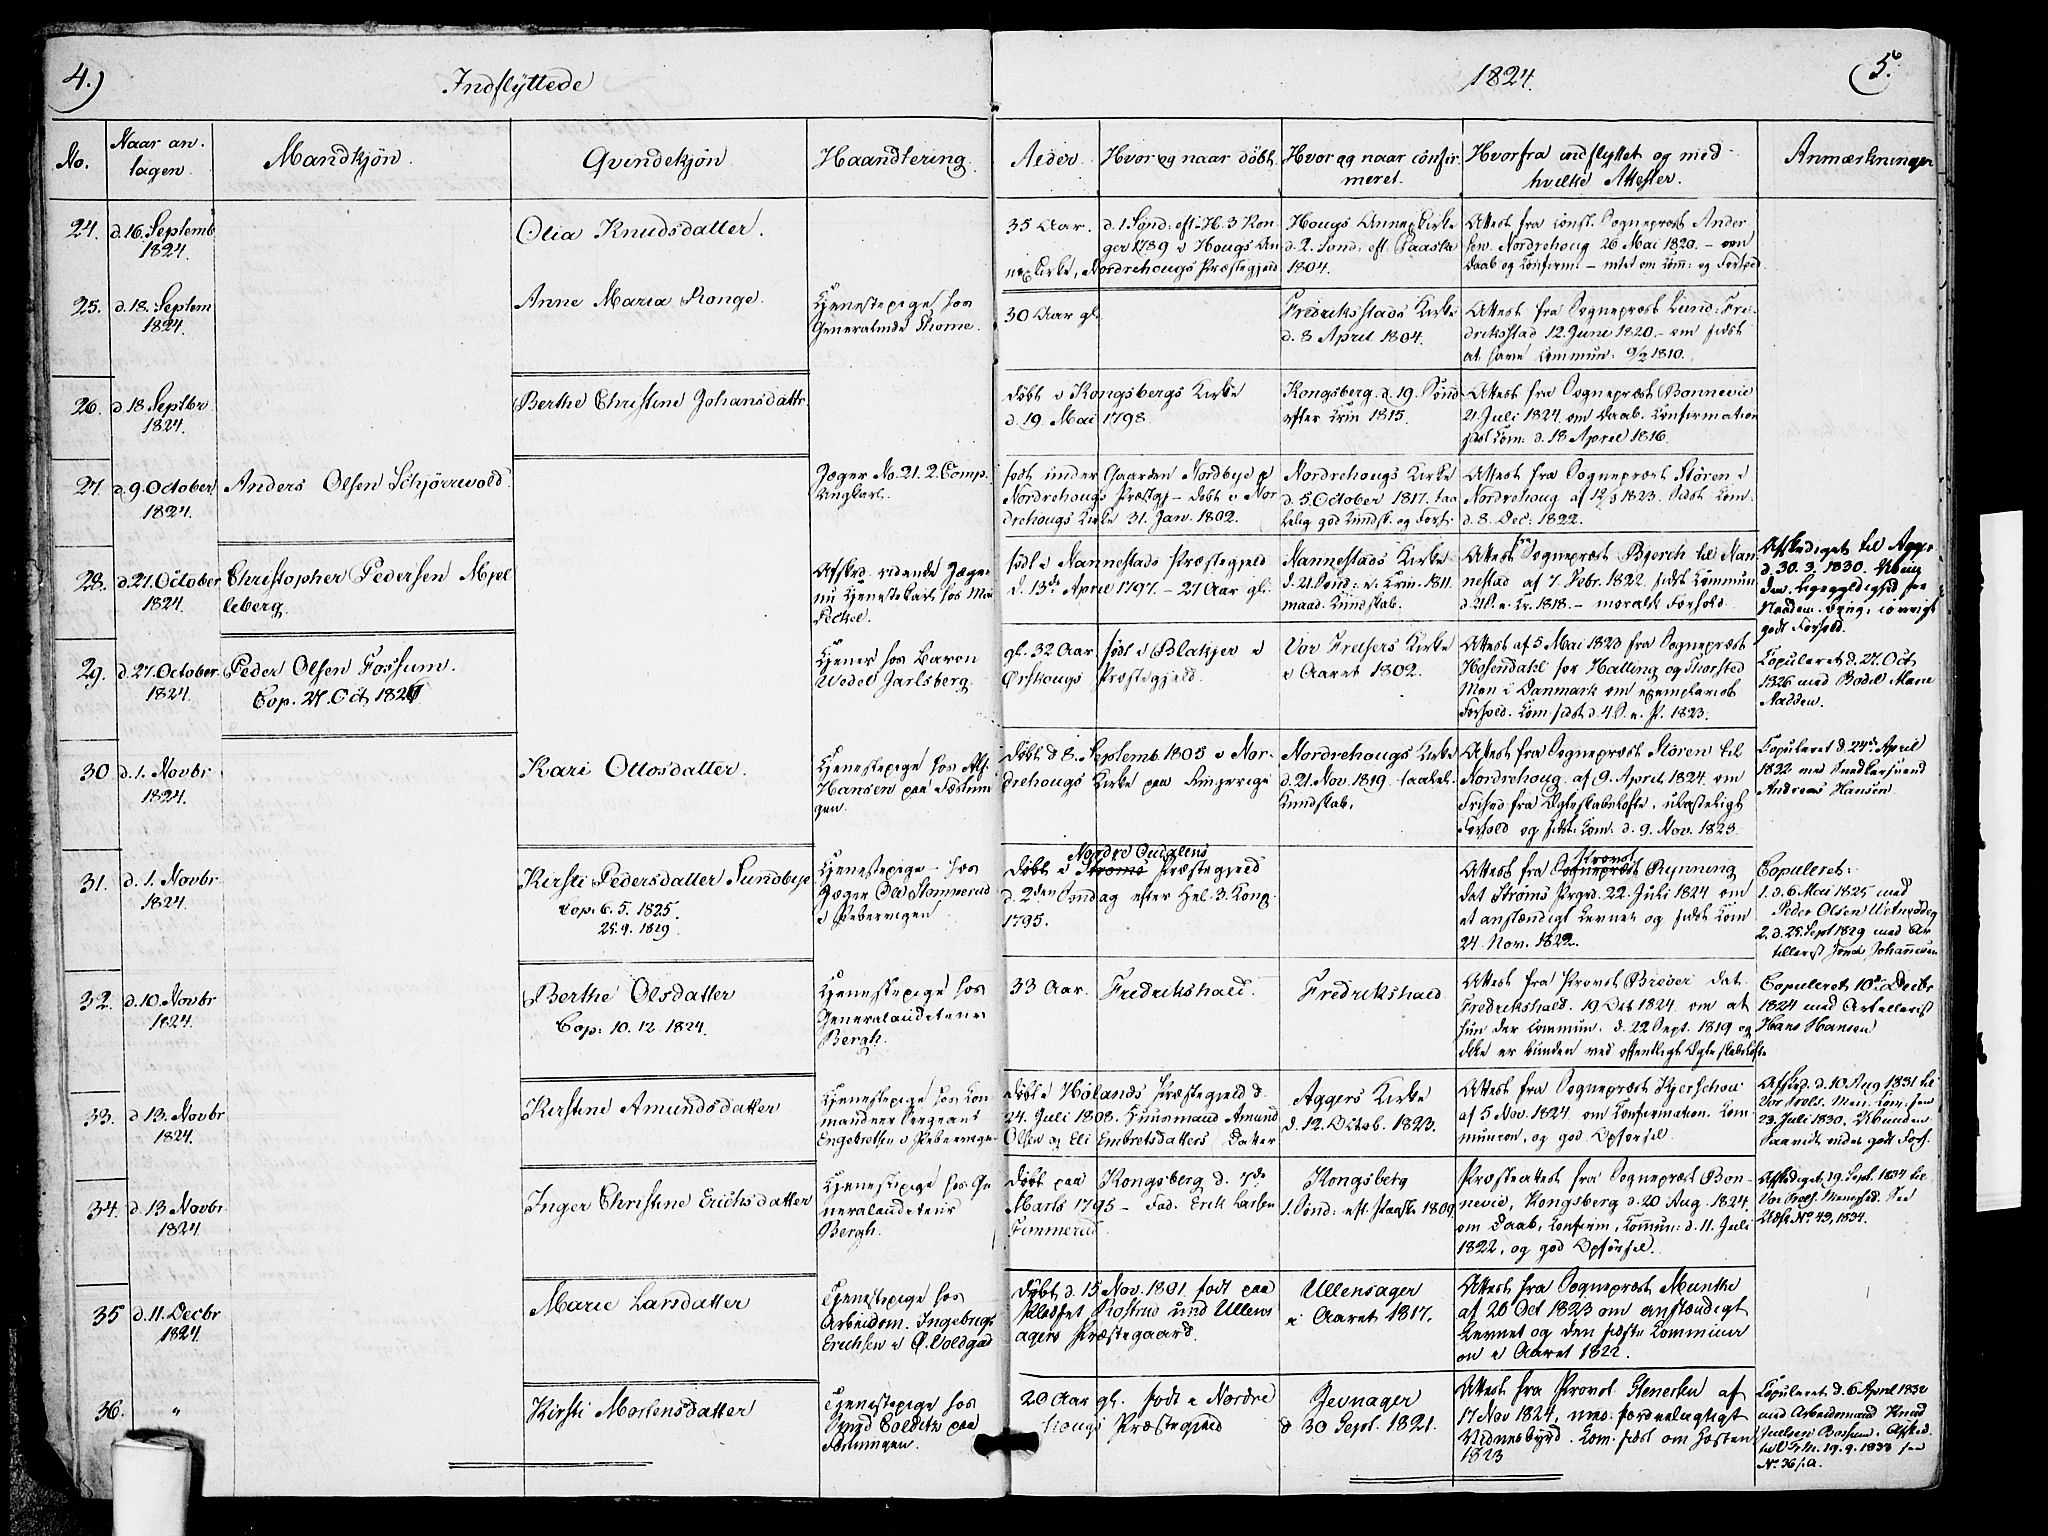 4.)
Indflyttede
1824.
(5.
No.
Naar an-
tagen.
Mandkjön.
Qvindekjön
Haandtering.
Alder
Hvor og naar döbt.
Hvor og naar confir
meret.
Hvorfra indflyttet og med
hvilke Attester.
Anmærkninger
24.
d.16. Septemb
1824.
Olia Knudsdatter.
35 Aar.
d. 1. Sönd: eft. H. 3 Kon
ger 1789 i Hougs An
nexkirke, Nordrehougs Præstegjeld
Hougs Annexkirke
d. 2. Sönd: eft. Paaske
1804.
Attest fra const. Sogneprest Ander
sen. Nordrehoug 26 Mai 1820. - om
Daab og Confirm: - intet om Com: og Forhold.
25.
d.18. Septem
1824.
Anne Maria Ronge.
Tjenestepige hos
Generalinde Thome.
30 Aar gl.
Fredriksstads Kirke
d. 8 April 1804.
Attest fra Sogneprest Lund: Fre-
driksstad 12. Juni 1820. - om sidst
at have Commun: 9/2 1810.
26.
d.18 Septbr
1824.
Berthe Christine Johansdattr
Döbt i Kongsbergs Kirke
d. 19. Mai 1798.
Kongsberg. d. 19. Sönd
efter Trin 1815.
Attest fra Sogneprest Bonnevie
21. Juli 1824 om Daab. Confirmation
sidst Com: d. 18 April 1816.
27.
d.9. October
1824.
Anders Olsen Schjörrvold.
Jæger No. 21. 2. Comp.
Ungkarl.
födt under Gaarden Nordbye i
Nordrehougs Præstegj. - döbt i Nor
drehougs Kirke 31. Jan. 1802.
Nordrehougs Kirke
d. 5 October 1817. taa
kelig god Kundsk. og Forh.
Attest fra Sogneprest Stören i
Nordrehoug af 12/3 1823. Sidst Com:
d. 8. Dec: 1822.
28.
d.27. October
1824.
Christopher Pedersen Mjel
leberg.
Afsked. ridende Jæger
nu Tjenestekarl hos
födt i Nannestads Præstegjeld
d. 13de April 1797. - 27 Aar gl:
Nannestads Kirke
d. 21 Sönd: e. Trin. 1811.
maad. Kundskab.
Attest fra Sogneprest Bjerch til Nan
nestad af 7. Febr. 1822. sidst Commun
d. 21 S. e. Tr. 1818. - moralsk Forhold.
Afskediget til Agger
d. 30. 3. 1830.
den. Ligegyldighed for
Naadem. brug, iøvrigt
godt Forhold.
29.
d.27. October.
1824.
Peder Olsen Fossum.
Cop. 27. Oct 1826
Tjener hos Baron
Wedel Jarlsberg.
gl. 32 Aar.
födt i Blakjer i
Örskougs Præstegjeld.
Vor Frelsers Kirke
i Aaret 1802.
Attest af 5 Mai 1823 fra Sogneprest
Hosendahl for Halling og Thorsted
Men. i Danmark om exemplarisk
Forhold. Com. sidst d. 4. S. e. P. 1823.
Copuleret d. 27. Oct
1826 med Bodil Marie
Madsen.
30
d. 1. Novbr
1824.
Kari Ottosdatter.
Tjenestepige hos
Hansen paa Fæstnin
gen.
Döbt d. 8. Septemb. 1805 i Nor-
drehougs Kirke paa Ringerige
Nordrehougs Kirke
d. 21. Nov. 1819. taakel.
Kundskab.
Attest fra Sogneprest Stören til
Nordrehoug. af 9. April. 1824. om
Frihed fra Ægteskabslöfte, ulasteligt
Forhold og sidst. Com. d. 9. Nov. 1823.
Copuleret d. 24de April
1832 med Snedkersvend
Andreas Hansen.
31.
d. 1. Novbr
1824.
Kirsti Pedersdatter Sundbye
Cop. 6. 5. 1825.
25. 9. 1829
Tjenestepige - hos
Jæger Ole Stammerud
i Pebervigen.
Nordre Oudalens
Döbt i Ströms Præstegjeld
d. 2den Söndag efter Hel. 3. Kong.
1795.
Provst
Attest fra Sogneprest Rynning
dat Ströms Prgrd. 22. Juli 1824 om
et anstændigt Levnet og sidst Com
24. Nov. 1822.
Copuleret:
1. d. 6. Mai 1825 med
Peder Olsen
2. d. 25. Sept 1829 med Ar
tillerist Johannesen
32.
d.10. Novbr
1824.
Berthe Olsdatter
Cop: 10. 12. 1824.
Tjenestepige hos
Generalauditeur
Bergh.
33 Aar.
Fredrikshald.
Fredrikshald
Attest fra Provst Breder dat.
Fredrikshald. 19. Oct 1824 om at
hun der Commun. d. 22 Sept. 1819 og
ikke er bunden ved offentligt Ægteskabslöfte
Copuleret 10de Decbr
1824 med Artellerist
Hans Hansen
33.
d 13. Novbr
1824.
Kirstine Amundsdatter
Tjenestepige hos Com
mandeer Sergeant
Engebretsen i Pebervigen
Döbt i Hölands Præstegjeld d.
24. Juli 1808. Huusmand Amund
Olsen og Eli Embretsdatters Datter
Aggers Kirke
d. 12. Octob. 1823.
Attest fra Sogneprest Kjerschou
af 5 Nov. 1824. om Confirmation. Com-
munion, og god Opförsel.
Afsked. d. 10 Aug 1831 til
Vor Frels. Men. Com. sen
23. Juli 1830. Ubunden
saavidt vides godt Forh.
34.
d. 13 Novbr
1824
Inger Christine Erichsdatter
Tjenestepige hos Ge
neralauditeur
Bergh.
Döbt paa Kongsberg d. 7de
Marts 1795 - Fad. Erik Larsen
Simmerud.
Kongsberg
1. Sönd: eft. Paaske 1809
Præsteattest fra Sogneprest Bon-
nevie, Kongsberg d. 20 Aug. 1824.
om Daab, Confirm, Commun: d. 11. Juli
1822, og god Opförsel.
Afskediget, 19. Sept. 1834 til
Vor Frels. Menighed. See
Udfl. No. 49, 1834.
35
d. 11. Decbr
1824.
Marie Larsdatter
Tjenestepige hos
Arbeidsm. Ingebrigt
Erichsen i Ö. Voldgad
Döbt d. 15. Nov. 1801. födt paa
Pladset Rostrud und Ullens
agers Præstegaard.
Ullensager
i Aaret 1817.
Attest fra Sogneprest Munthe
af 20 Oct 1823 om anstændigt
Levnet og den sidste Communi
on i Aaret 1822.
36.
"
Kirsti Mortensdatter
Tjenestepige hos
Colditz paa
Fæstningen.
20 Aar gl. födt i Nordre
hougs Præstegjeld
Jevnager
d 30 Sept. 1821.
Attest fra Provst Stenersen af
17 Nov 1824, med fordeelagtigt
Vidnesbyrd. Com. sidst om Hösten
1823
Copuleret d. 6 April 1832
med Arbeidsmand Knud
Juelsen Afsked.
19. 9. 1833 see
No. 36 s. a.